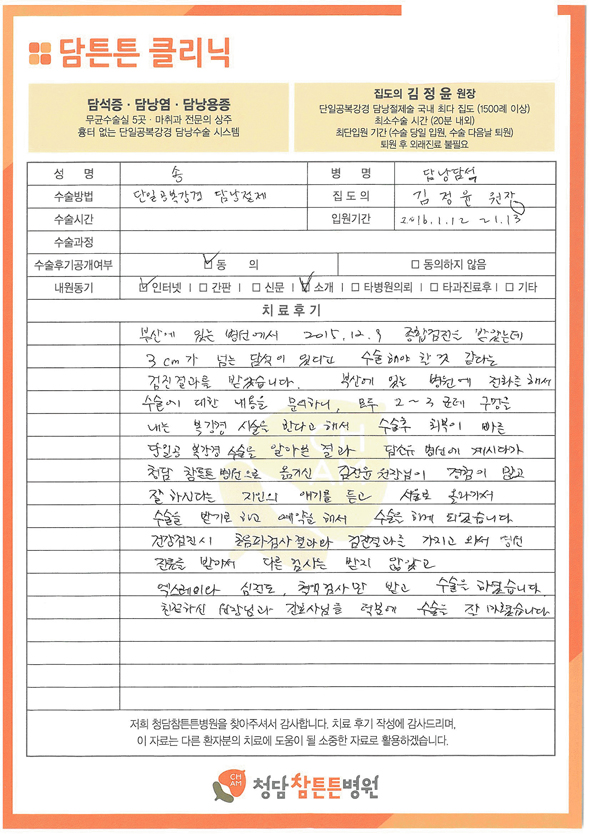 담튼튼 클리닉
담석증 · 담낭염 · 담낭용종
무균수술실 5곳 · 마취과 전문의 상주
흉터 없는 단일공복강경 담낭수술 시스템
집도의 김정윤 원장
단일공복강경 담낭절제술 국내 최다 집도 (1500례 이상)
최소수술 시간 (20분 내외)
최단입원 기간 (수술 당일 입원, 수술 다음날 퇴원)
퇴원 후 외래진료 불필요
성 명 송 병 명 담낭담석
수술방법 단일공복강경 담낭절제 집 도 의 김정윤 원장
수술시간 입원기간 2016.1.12 ~1.13
수술과정
수술후기공개여부 ☑ 동 의 □ 동의하지 않음
내원동기 ☑ 인터넷 | □ 간판 | □ 신문 | ☑ 소개 | □ 타병원의뢰 | □ 타과진료후 | □ 기타
치 료 후 기
부산에 있는 병원에서 2015.12.9 종합검진을 받았는데
3cm가 넘는 담석이 있다고 수술해야 할 것 같다는
검진결과를 받았습니다. 부산에 있는 병원에 전화를 해서
수술에 대한 내용을 문의하니, 모두 2~3군데 구멍을
내는 복강경 시술을 한다고 해서 수술후 회복이 빠른
단일공 복강경 수술을 알아본 결과 담소유 병원에 계시다가
청담 참튼튼병원으로 옮기신 김정윤원장님이 경험이 많고
잘 하신다는 지인의 얘기를 듣고 서울로 올라가서
수술을 받기로 하고 예약을 해서 수술을 하게 되었습니다
건강검진시 초음파검사결과와 검진결과를 가지고 와서
진료를 받아서 다른 검사는 받지 않았고
엑스레이와 심전도, 혈액검사만 받고 수술을 하였습니다.
친절하신 원장님과 간호사님들 덕분에 수술을 잘 마쳤습니다
저희 청담참튼튼병원을 찾아주셔서 감사합니다. 치료 후기 작성에 감사드리며,
이 자료는 다른 환자분의 치료에 도움이 될 소중한 자료로 활용하겠습니다.
CH
AM
청담참튼튼병원